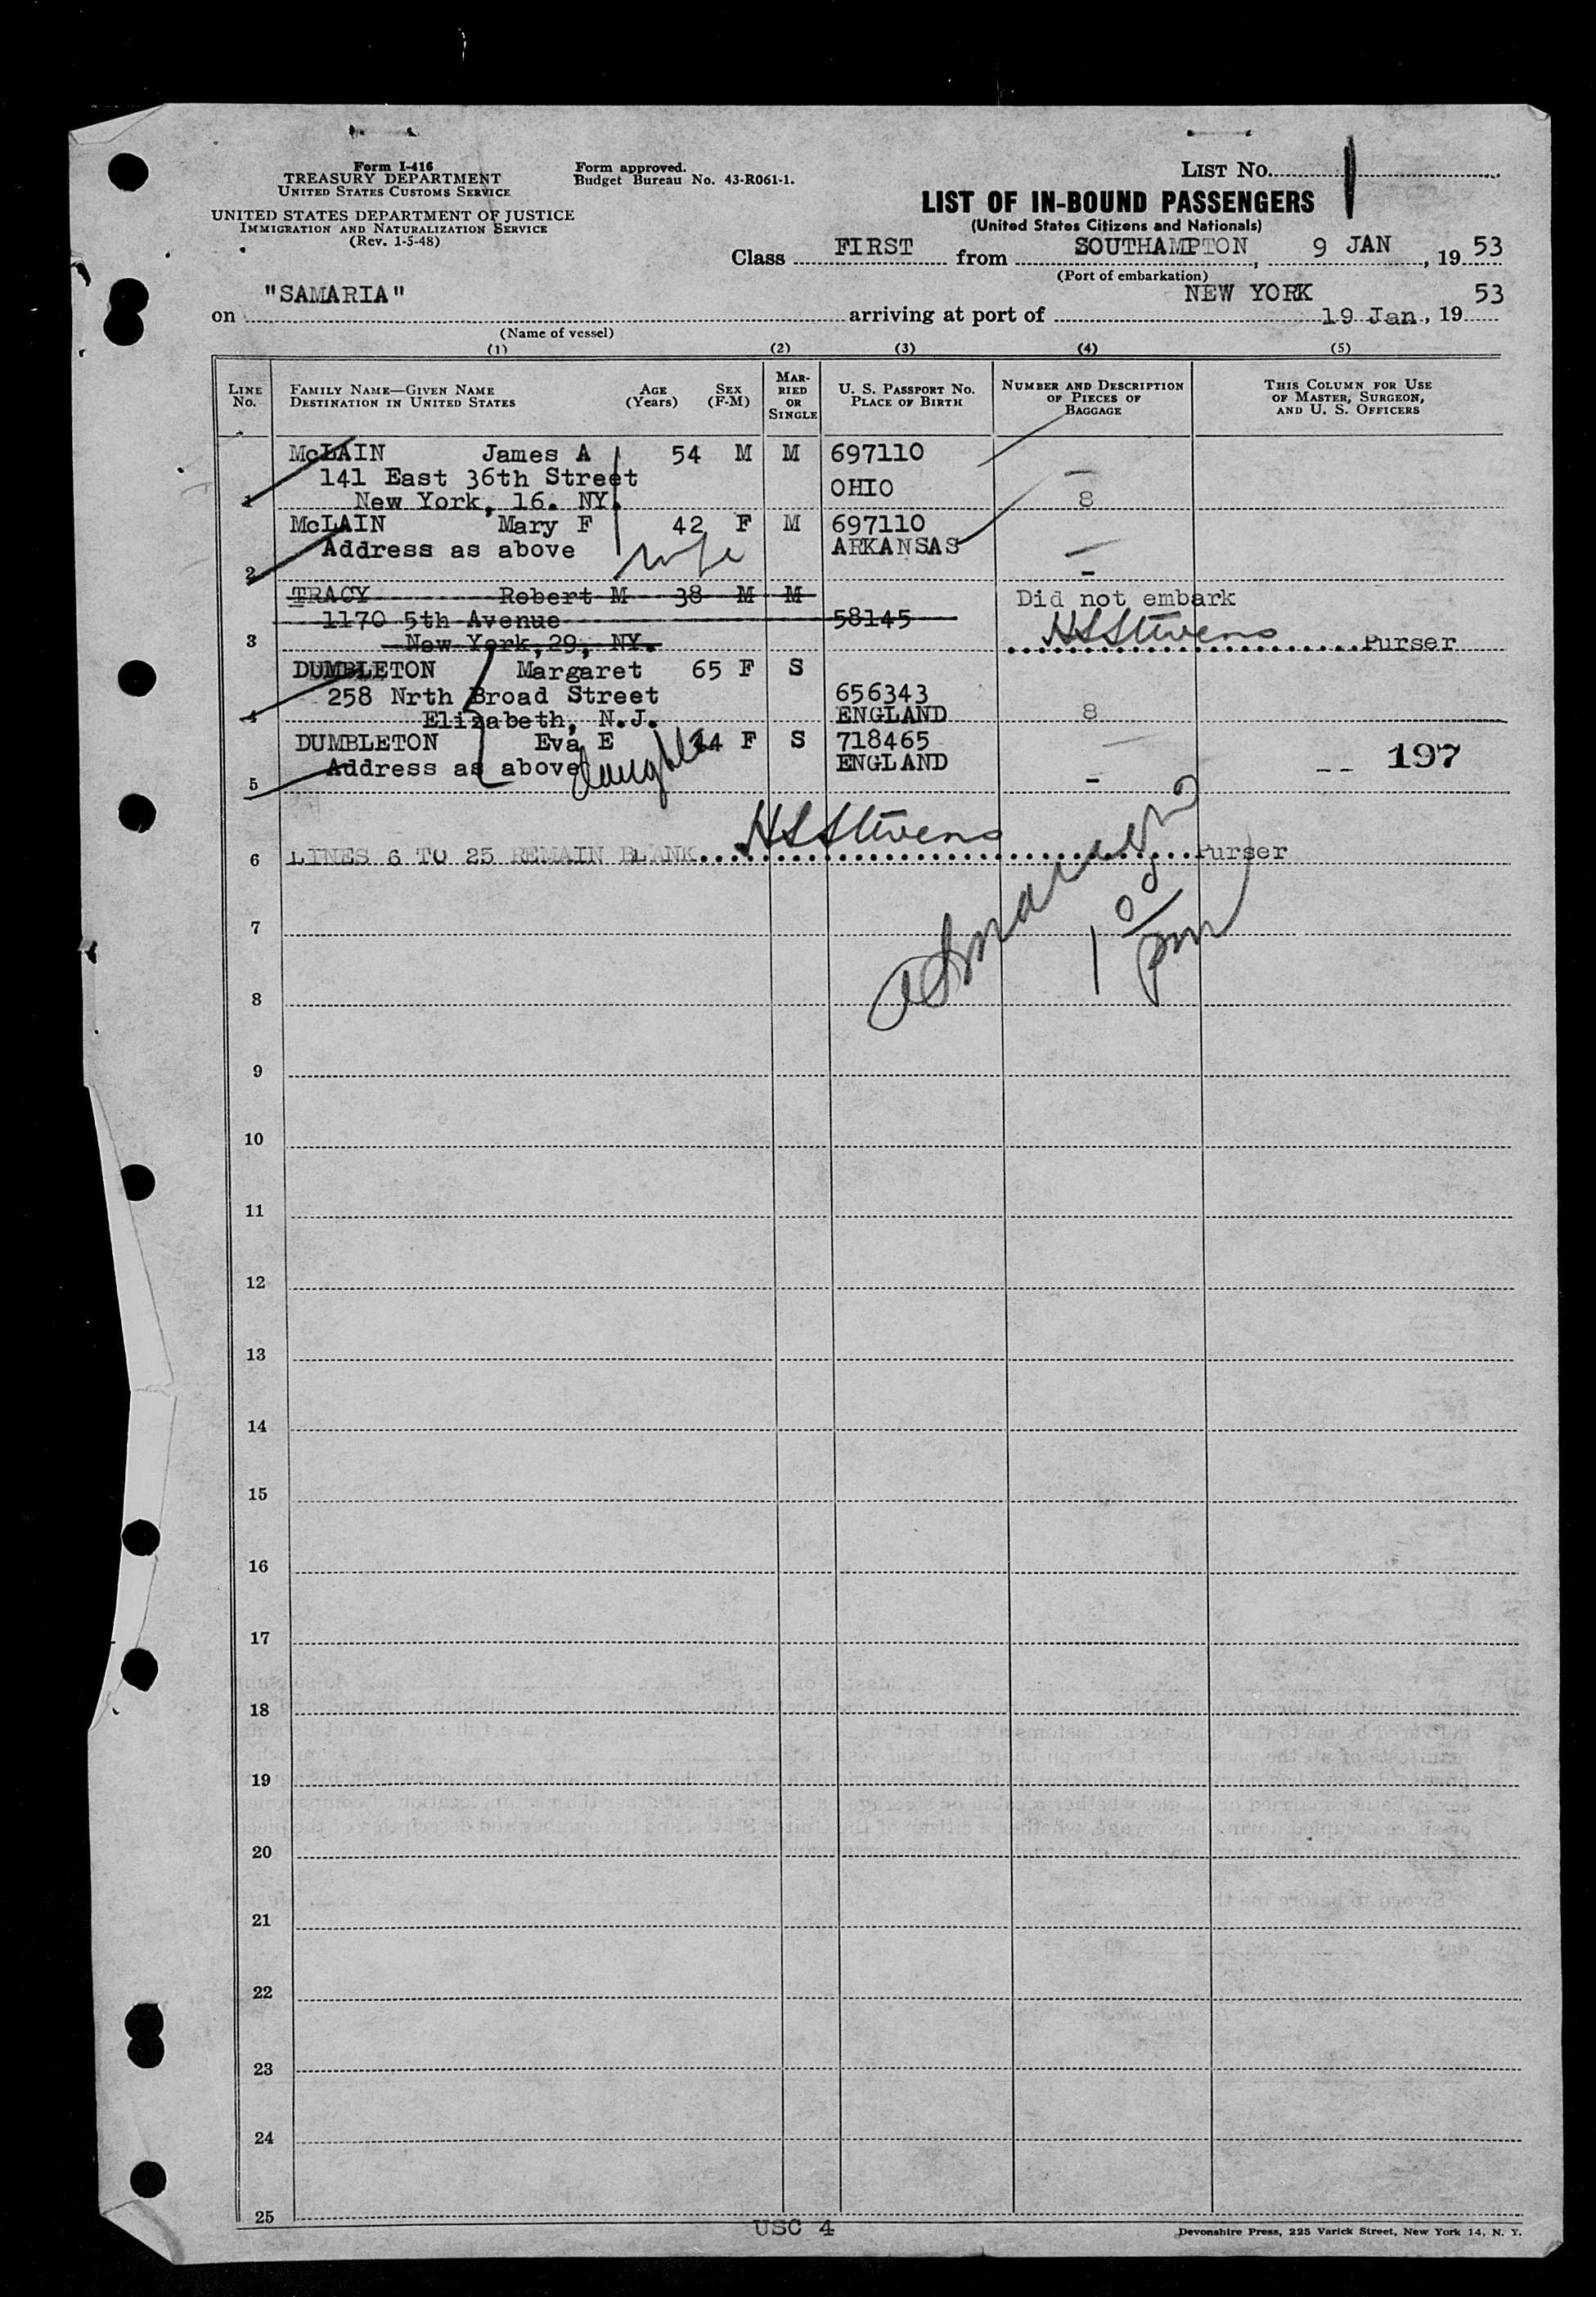 Form I-416
TREASURY DEPARTMENT
UNITED STATES CUSTOMS SERVICE
UNITED STATES DEPARTMENT OF JUSTICE
IMMIGRATION AND NATURALIZATION SERVICE
(Rev. 1-5-48)
Form approved.
Budget Bureau No. 43-R061-1.
LIST NO. 1
LIST OF IN-BOUND PASSENGERS
(United States Citizens and Nationals)
Class FIRST from SOUTHAMPTON, 9 JAN, 19 53
(Port of embarkation)
on "SAMARIA" arriving at port of NEW YORK 19 Jan, 19 53
(Name of vessel)
(1) (2) (3) (4) (5)
LINE NO. FAMILY NAME—GIVEN NAME DESTINATION IN UNITED STATES AGE (Years) SEX (F-M) MARRIED OR SINGLE U. S. PASSPORT NO. PLACE OF BIRTH NUMBER AND DESCRIPTION OF PIECES OF BAGGAGE THIS COLUMN FOR USE OF MASTER, SURGEON, AND U. S. OFFICERS
McLAIN James A 54 M M 697110
141 East 36th Street OHIO —
1 New York, 16. NY. 8
McLAIN Mary F 42 F M 697110
Address as above wife ARKANSAS —
2 -
TRACY Robert M 38 M M Did not embark
1170 5th Avenue 58145 HLStevens
3 New York, 29, NY. Purser
DUMBLETON Margaret 65 F S
258 Nrth Broad Street 656343
4 Elizabeth, N.J. ENGLAND 8
DUMBLETON Eva E 44 F S 718465 — 197
Address as above daughter ENGLAND
5 -
HLStevens
6 LINES 6 TO 25 REMAIN BLANK Purser
1 00 pm
7
8
9
10
11
12
13
14
15
16
17
18
19
20
21
22
23
24
25
USC 4
Devonshire Press, 225 Varick Street, New York 14, N. Y.